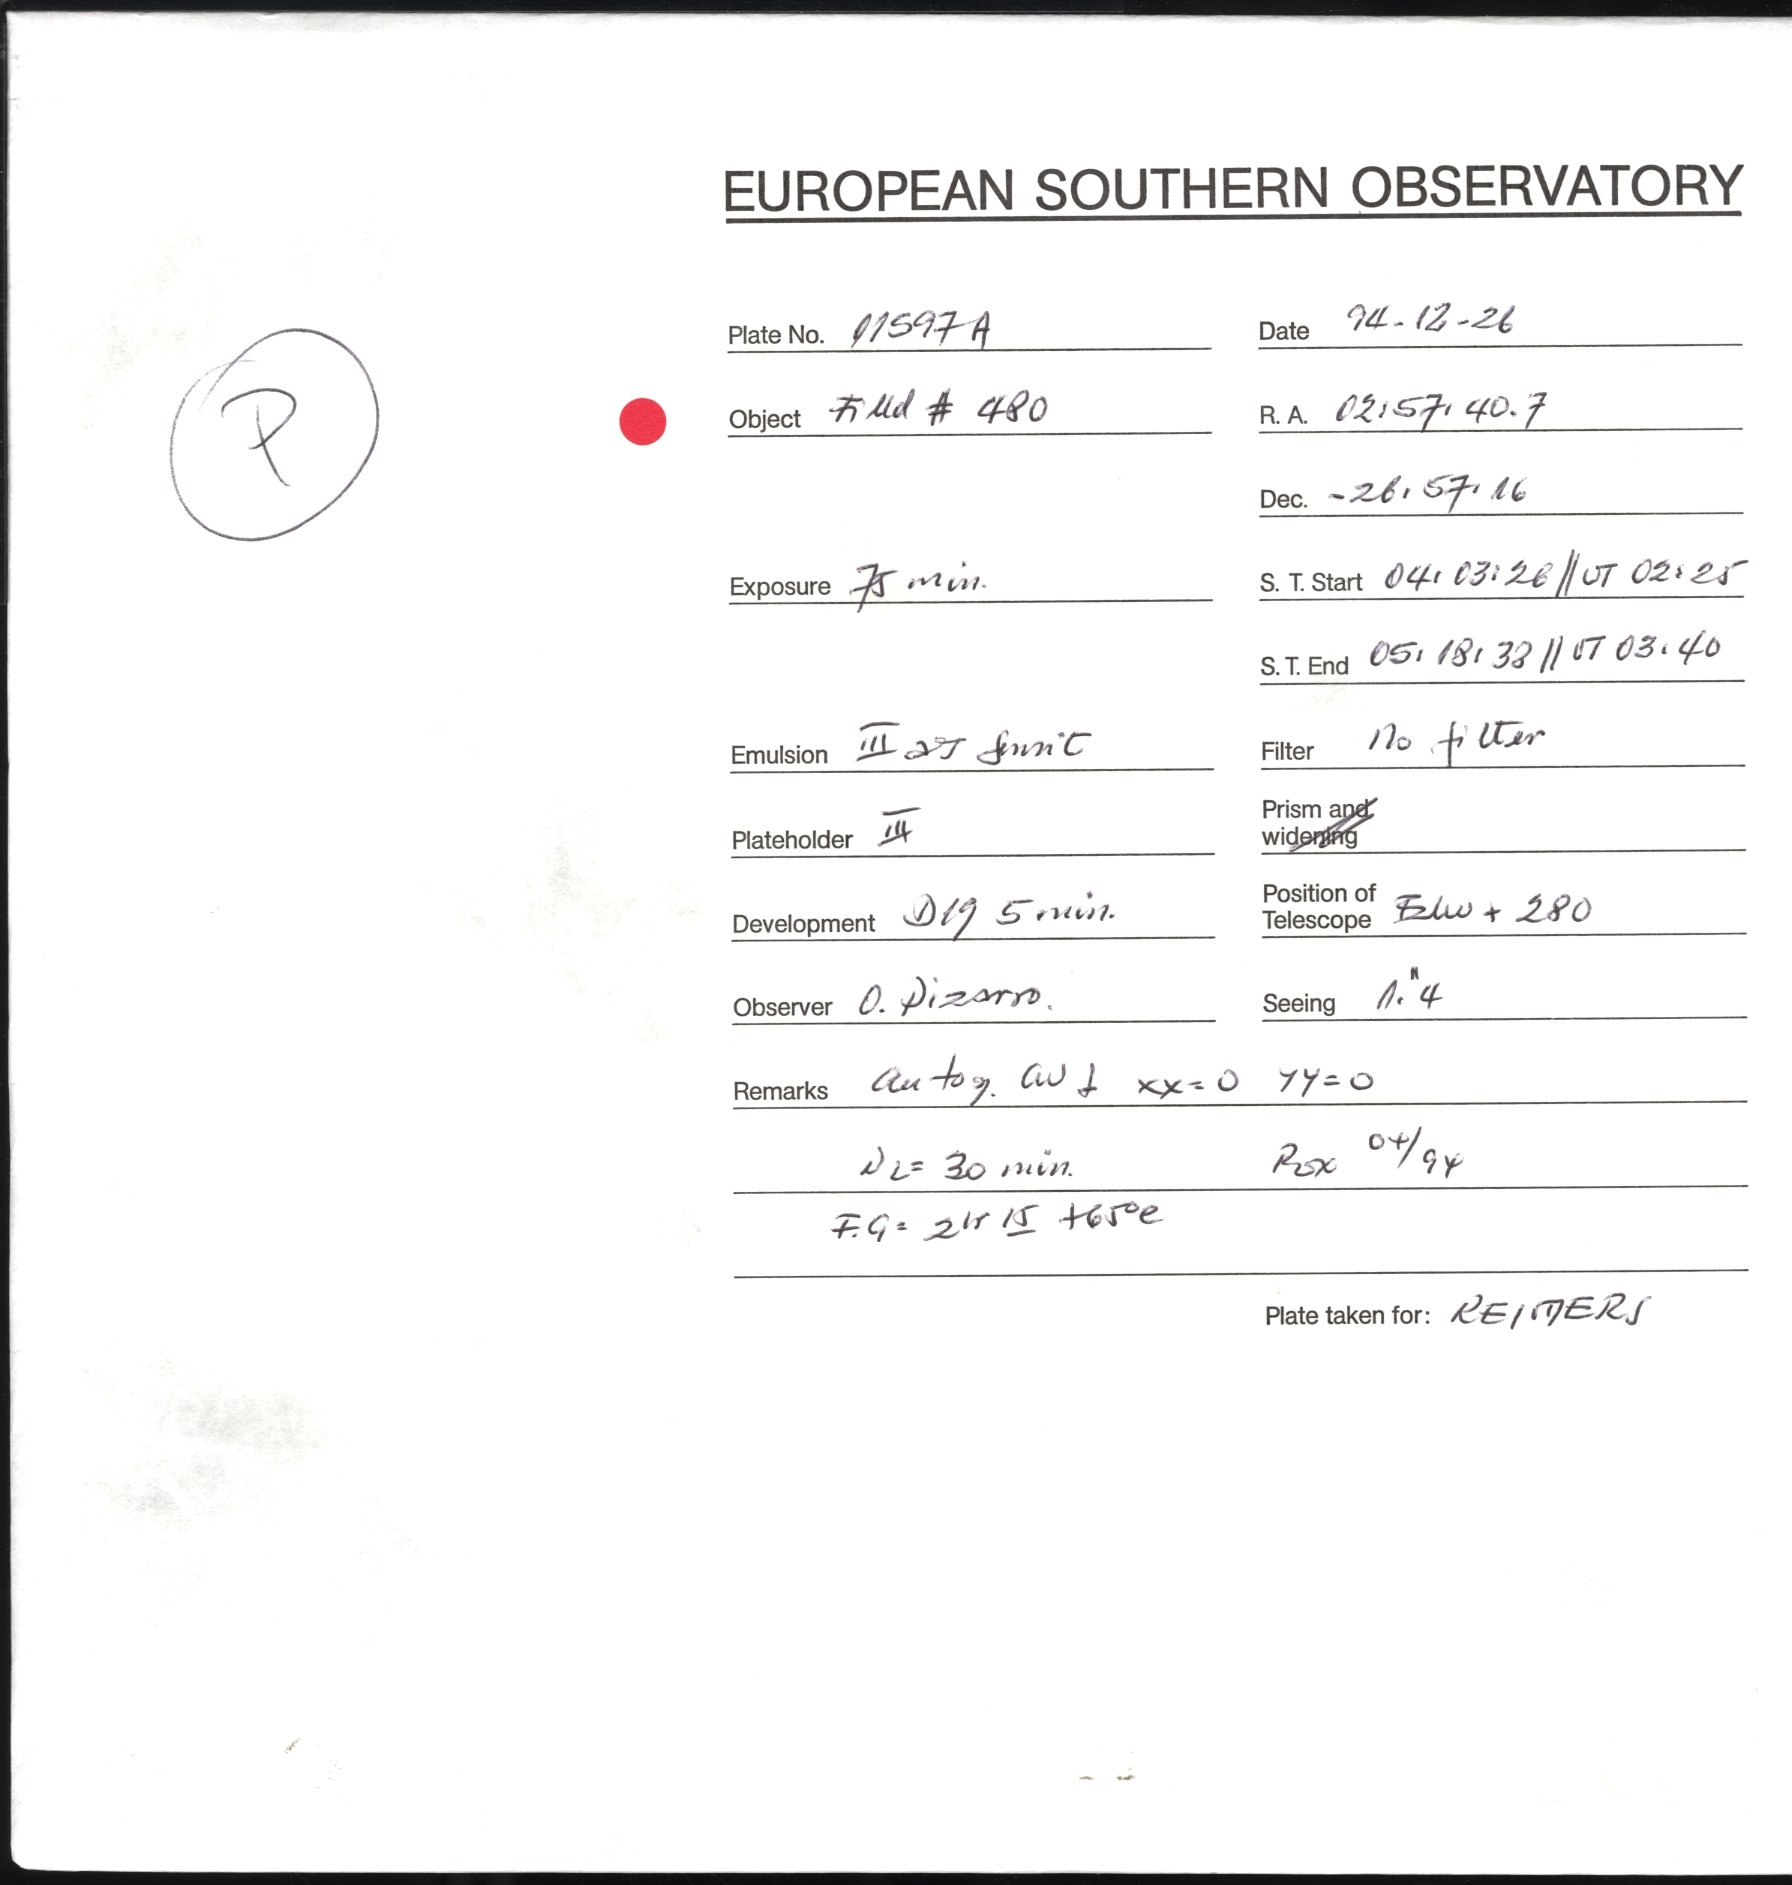 EUROPEAN SOUTHERN OBSERVATORY
P
Plate No. 11597A Date 94-12-26
Object Field # 480 R. A. 02:57:40.7
Dec. -26:57:16
Exposure 75 min. S. T. Start 04:03:26 // UT 02:25
S. T. End 05:18:38 // UT 03:40
Emulsion III aJ Filter No filter
Plateholder III Prism and widening
Development D19 5 min. Position of Telescope + 280
Observer O. Pizarro. Seeing 1."4
Remarks autog. xx=0 YY=0
= 30 min. Box 04/94
F.G= +65°c
Plate taken for: REIMERS